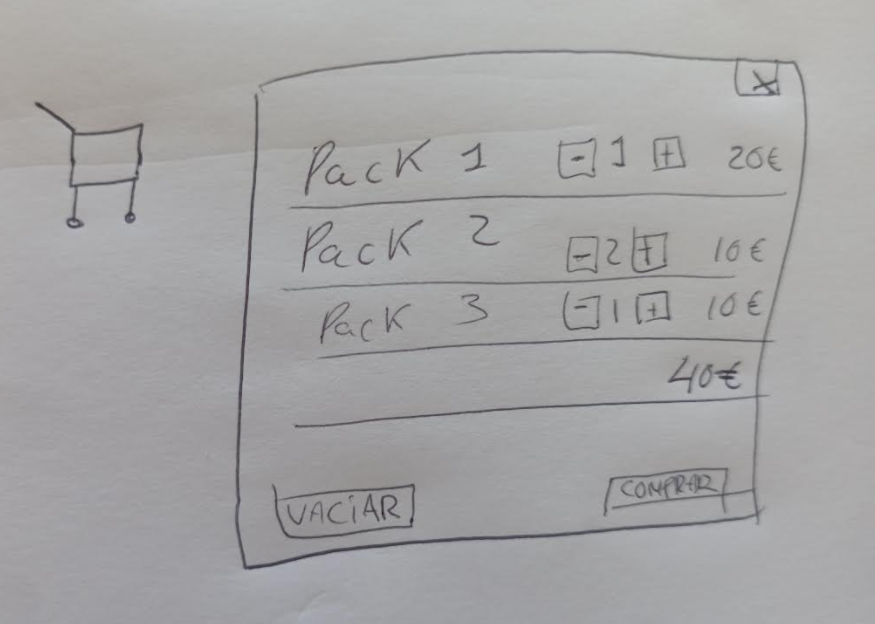 X
Pack 1 - 1 + 20€
Pack 2 - 2 + 10€
Pack 3 - 1 + 10€
40€
VACiAR COMPRAR